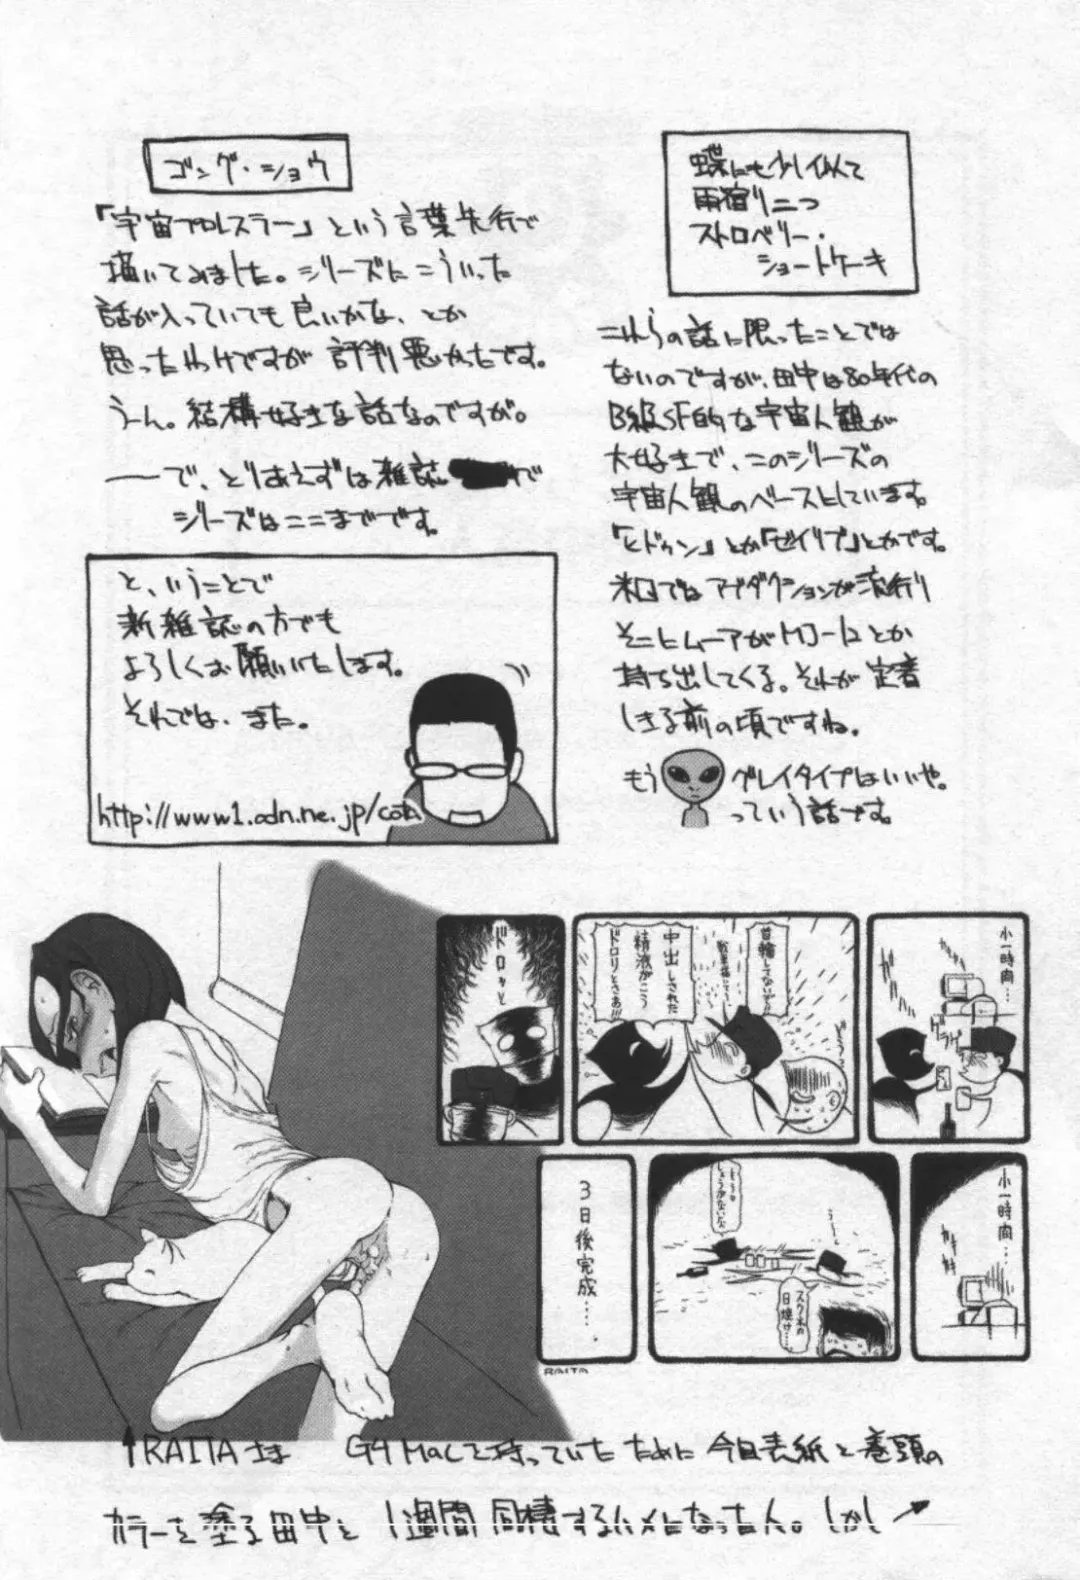 蝶にも少し似て
雨宿り二つ
ストロベリー・
ショートケーキ
これらの話に限ったことでは
ないのですが、田中は80年代の
B級SF的な宇宙人観が
大好きで、このシリーズの
宇宙人観のベースとしています。
「ヒドゥン」とか「ゼイリブ」とかです。
米国ではアブダクションが流行り
そこにムーアがMJ-12とか
持ち出してくる。それが定着
しきる前の頃ですね。
もう グレイタイプはいいや。
っていう話です。
ゴング・ショウ
「宇宙プロレスラー」という言葉先行で
描いてみました。シリーズにこういった
話が入っていても良いかな、とか
思ったわけですが評判悪かったです。
うーん。結構好きな話なのですが。
――で、とりあえずは雑誌 で
シリーズはここまでです。
と、いうことで
新雑誌の方でも
よろしくお願いいたします。
それでは、また。
http://www1.odn.ne.jp/cota
小一時間…
首輪してないぞ!!
中出しされた
精液がこう
ドロリとさぁ!!!
ドロッと
小一時間…
もう
しょうがないな
スク水の
日焼け…
3日後完成……
RAITA
↑RAITAさま G4 Macを持っていたために今回表紙と巻頭の
カラーを塗る田中と1週間同棲するハメになった人。しかし→